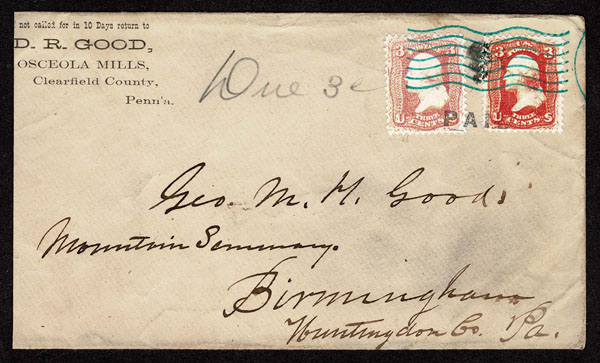 not called for in 10 Days return to
D. R. GOOD,
OSCEOLA MILLS,
Clearfield County,
Penn'a.
Due 3c
3 U.S. 3
THREE CENTS
U S
3 U.S. 3
THREE CENTS
U S
PAID
Geo. M. H. Goods
Mountain Seminary.
Birmingham
Huntingdon Co. Pa.